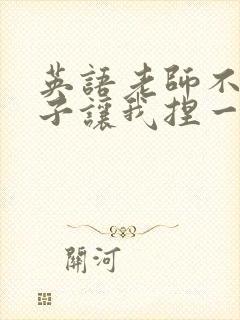 英語老師不
子讓我捏一
關河